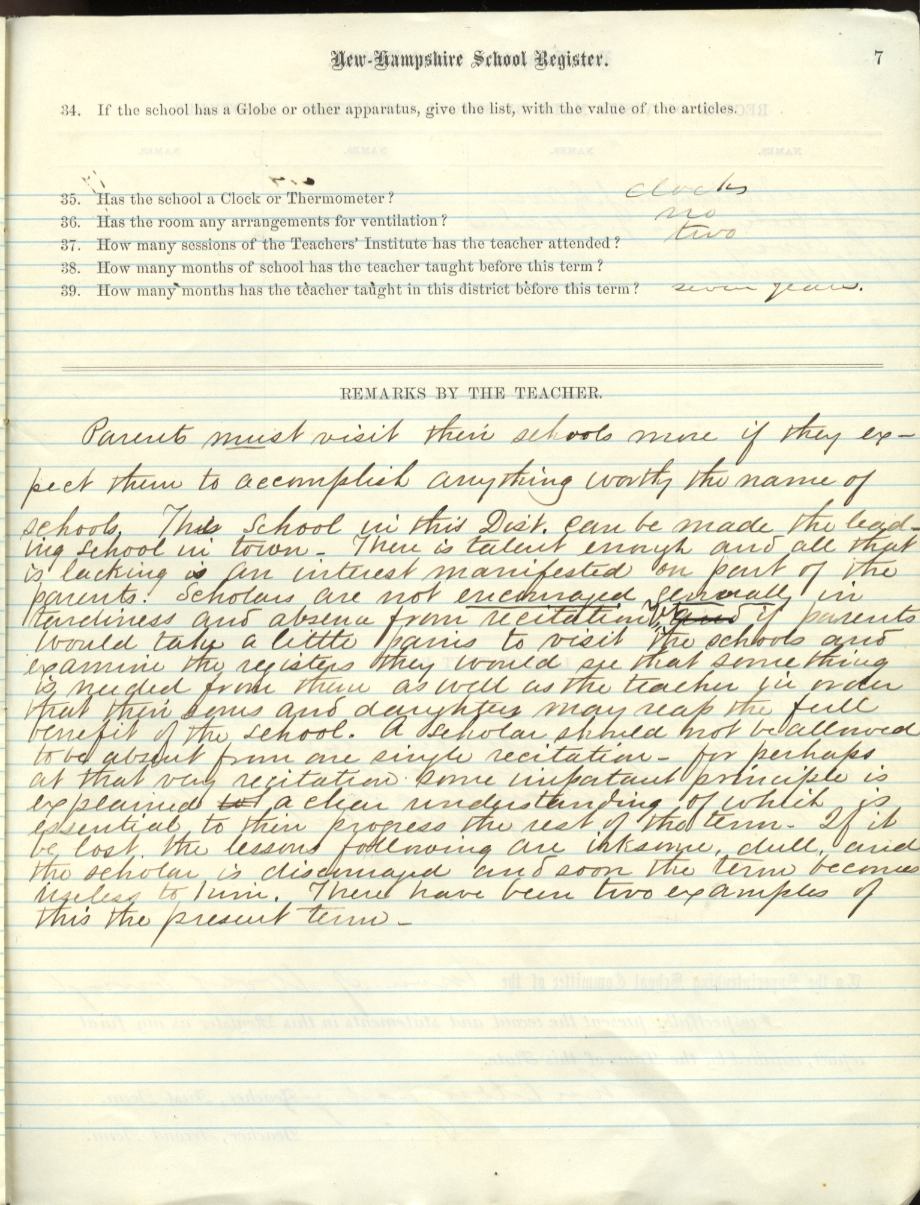 New-Hampshire School Register.
7
34. If the school has a Globe or other apparatus, give the list, with the value of the articles.
35. Has the school a Clock or Thermometer? clocks
36. Has the room any arrangements for ventilation? no
37. How many sessions of the Teachers' Institute has the teacher attended? two
38. How many months of school has the teacher taught before this term?
39. How many months has the teacher taught in this district before this term? seven years.
REMARKS BY THE TEACHER.
Parents must visit their schools more if they ex-
pect them to accomplish anything worthy the name of
schools. The School in this Dist. can be made the lead-
ing School in town - There is talent enough and all that
is lacking is an interest manifested on part of the
parents. Scholars are not encouraged generally in
tardiness and absence from recitation, yet and if parents
would take a little pains to visit the schools and
examine the registers they would see that something
is needed from them as well as the teacher in order
that their sons and daughters may reap the full
benefit of the School. A Scholar should not be allowed
to be absent from one single recitation - for perhaps
at that very recitation some important principle is
explained to a clear understanding of which is
essential to their progress the rest of the term - If it
be lost, the lessons following are irksome, dull, and
the scholar is discouraged and soon the term becomes
useless to him. There have been two examples of
this the present term -